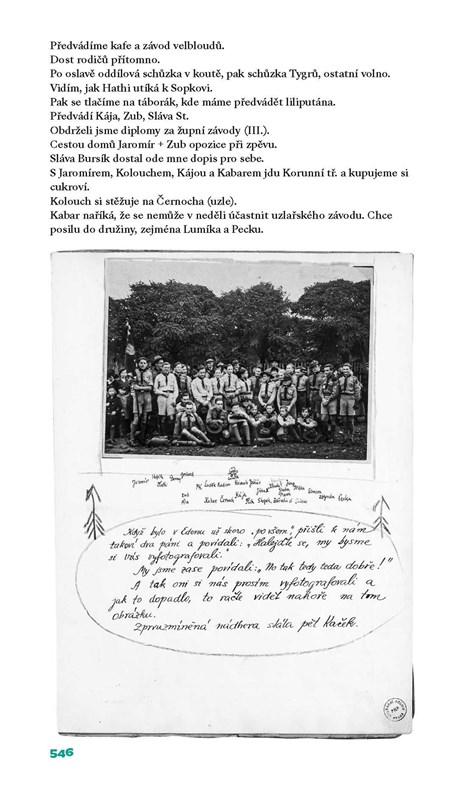 Předvádíme kafe a závod velbloudů.
Dost rodičů přítomno.
Po oslavě oddílová schůzka v koutě, pak schůzka Tygrů, ostatní volno.
Vidím, jak Hathi utíká k Sopkovi.
Pak se tlačíme na táborák, kde máme předvádět liliputána.
Předvádí Kája, Zub, Sláva St.
Obdrželi jsme diplomy za župní závody (III.).
Cestou domů Jaromír + Zub opozice při zpěvu.
Sláva Bursík dostal ode mne dopis pro sebe.
S Jaromírem, Kolouchem, Kájou a Kabarem jdu Korunní tř. a kupujeme si
cukroví.
Kolouch si stěžuje na Černocha (uzle).
Kabar naříká, že se nemůže v neděli účastnit uzlařského závodu. Chce
posilu do družiny, zejména Lumíka a Pecku.
Jaromír
Když bylo v Edenu už skoro „po všem", přišli k nám
takoví dva páni a povídali: „Halejďte se, my bysme
si Vás vyfotografovali."
My jsme zase povídali: „No tak tedy teda dobře!"
A tak oni si nás prostě vyfotografovali a
jak to dopadlo, to račte vidět nahoře na tom
obrázku.
Zprvuzmíněná nádhera stála pět Kaček.
546